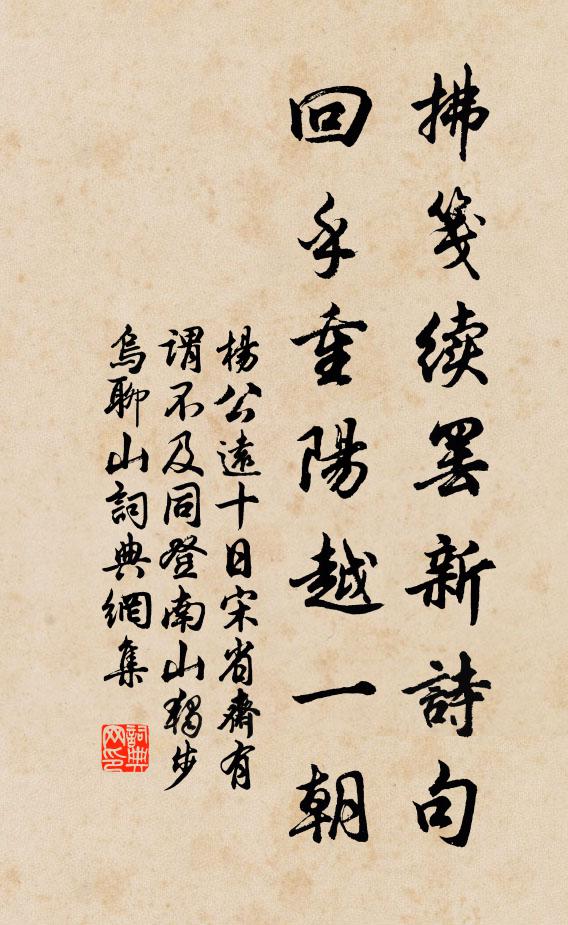 拂箋續罷新詩句
回手重陽越一朝
楊公遠十日宋省齋有
謂不及同登南山獨步
烏聊山詞典網集
詞典
网印